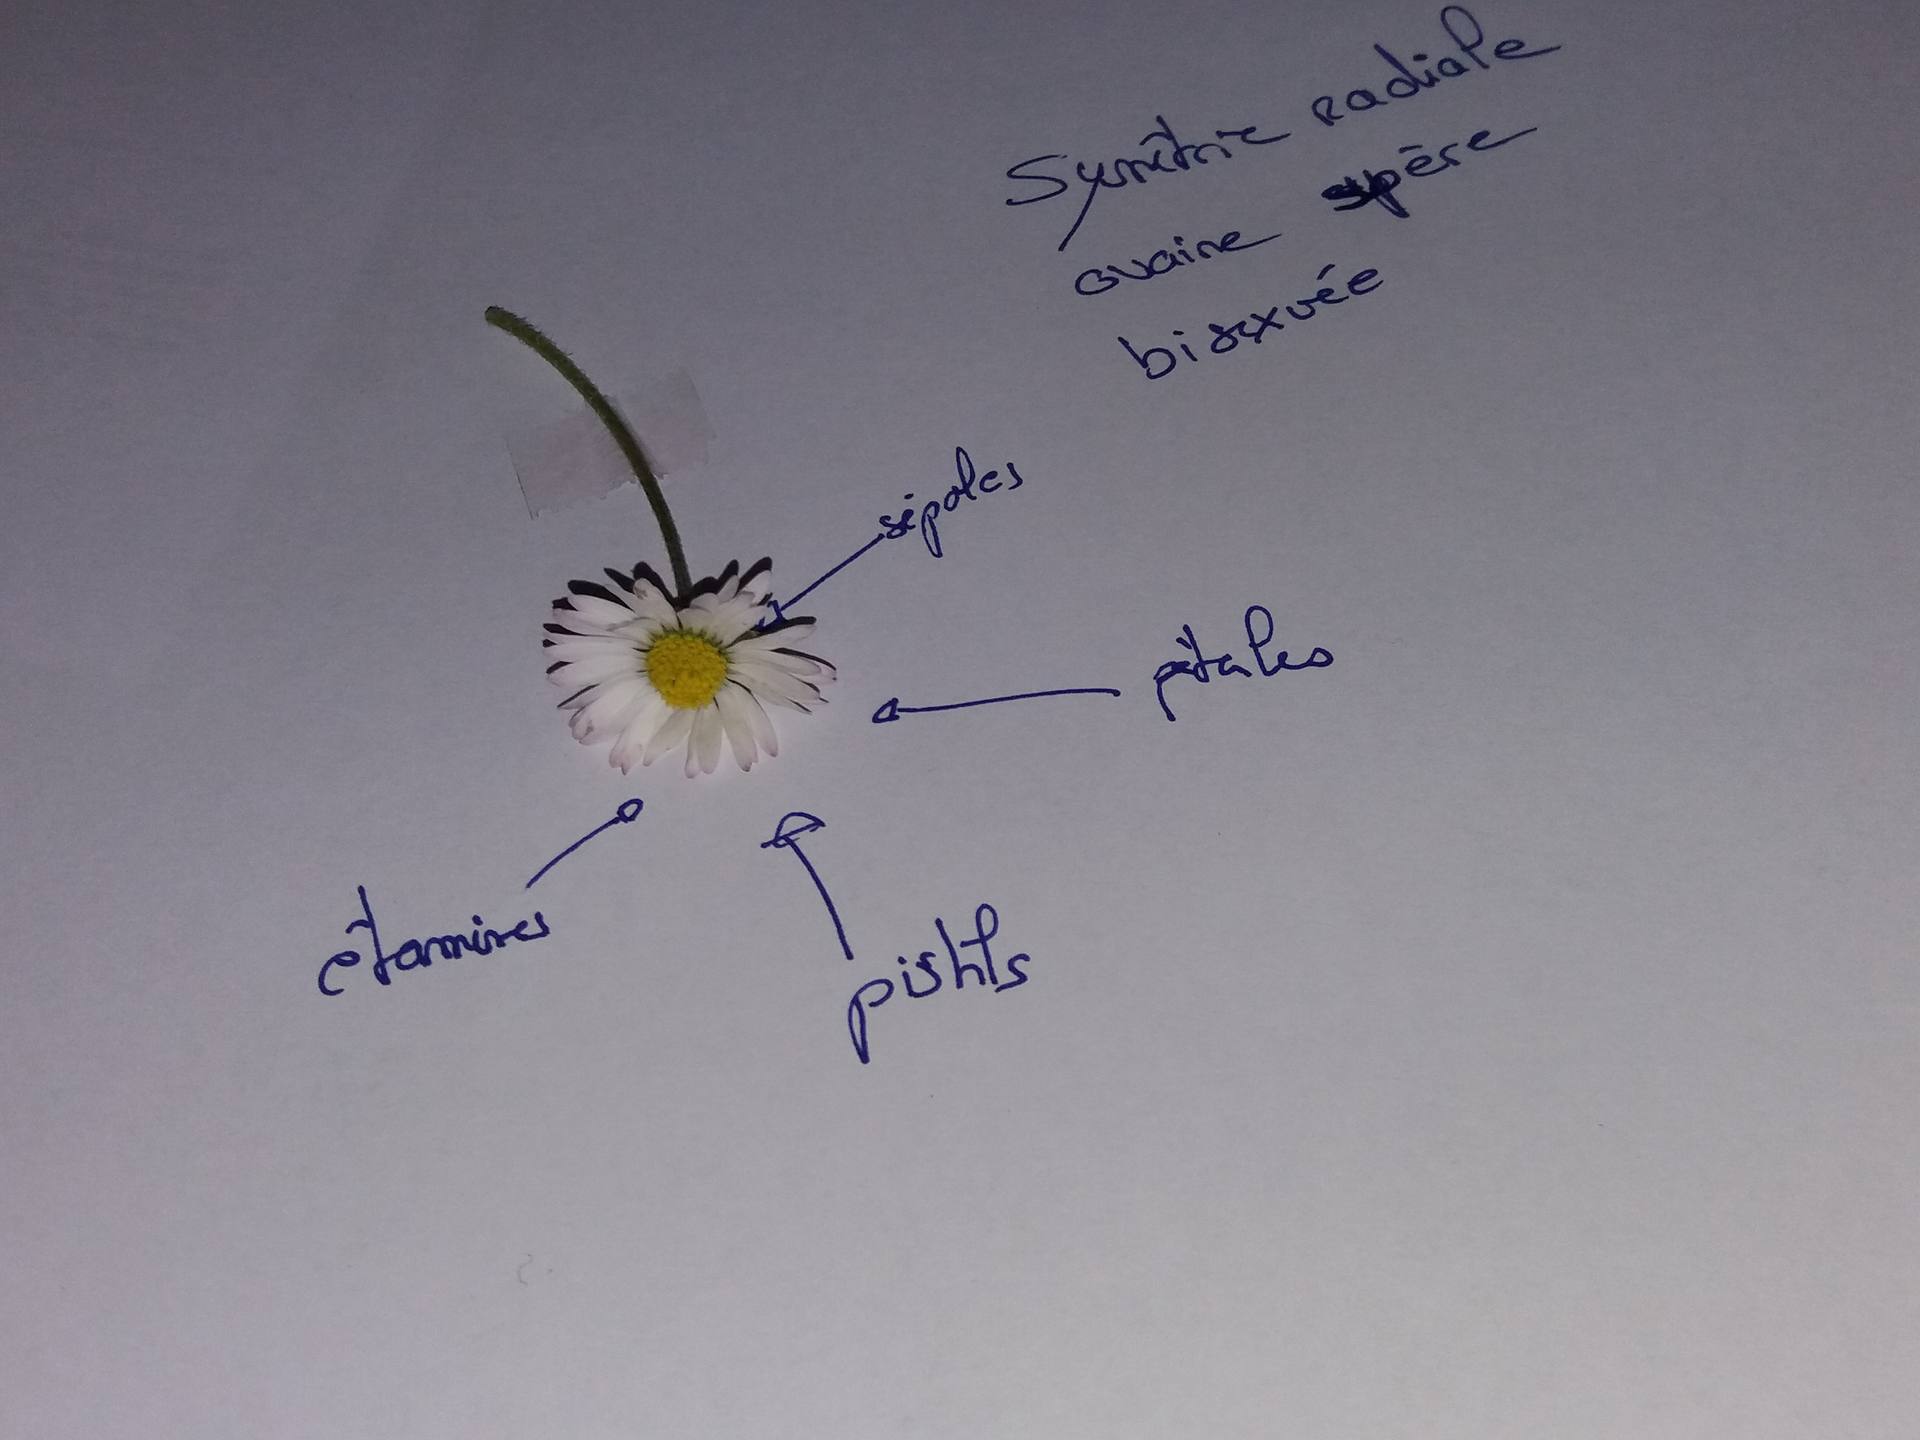 Symétrie radiale
ovaire
bisexuée
sépales
pétales
étamines
pistils